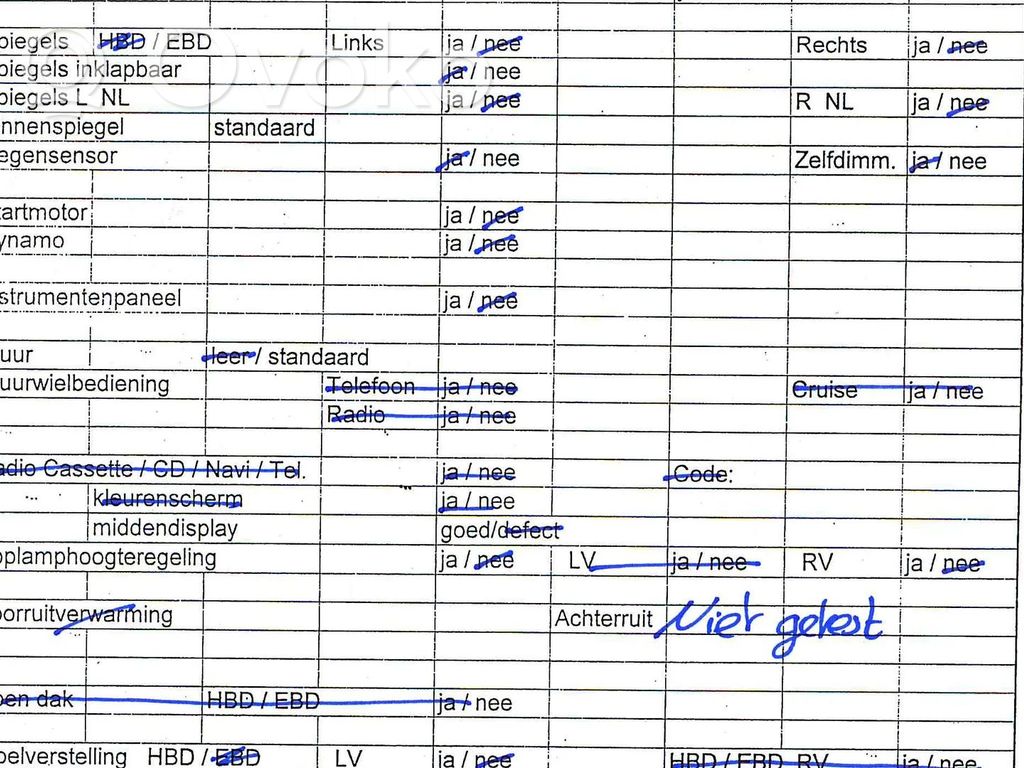 piegels HBD / EBD Links ja / nee Rechts ja / nee
piegels inklapbaar ja / nee
piegels L NL ja / nee R NL ja / nee
nnenspiegel standaard
egensensor ja / nee Zelfdimm. ja / nee
tartmotor ja / nee
ynamo ja / nee
strumentenpaneel ja / nee
uur leer / standaard
uurwielbediening Telefoon ja / nee Cruise ja / nee
Radio ja / nee
adio Cassette / CD / Navi / Tel. ja / nee Code:
kleurenscherm ja / nee
middendisplay goed/defect
plamphoogteregeling ja / nee LV ja / nee RV ja / nee
orruitverwarming Achterruit Niet getest
en dak HBD / EBD ja / nee
elverstelling HBD / EBD LV ja / nee HBD / EBD RV ja / nee